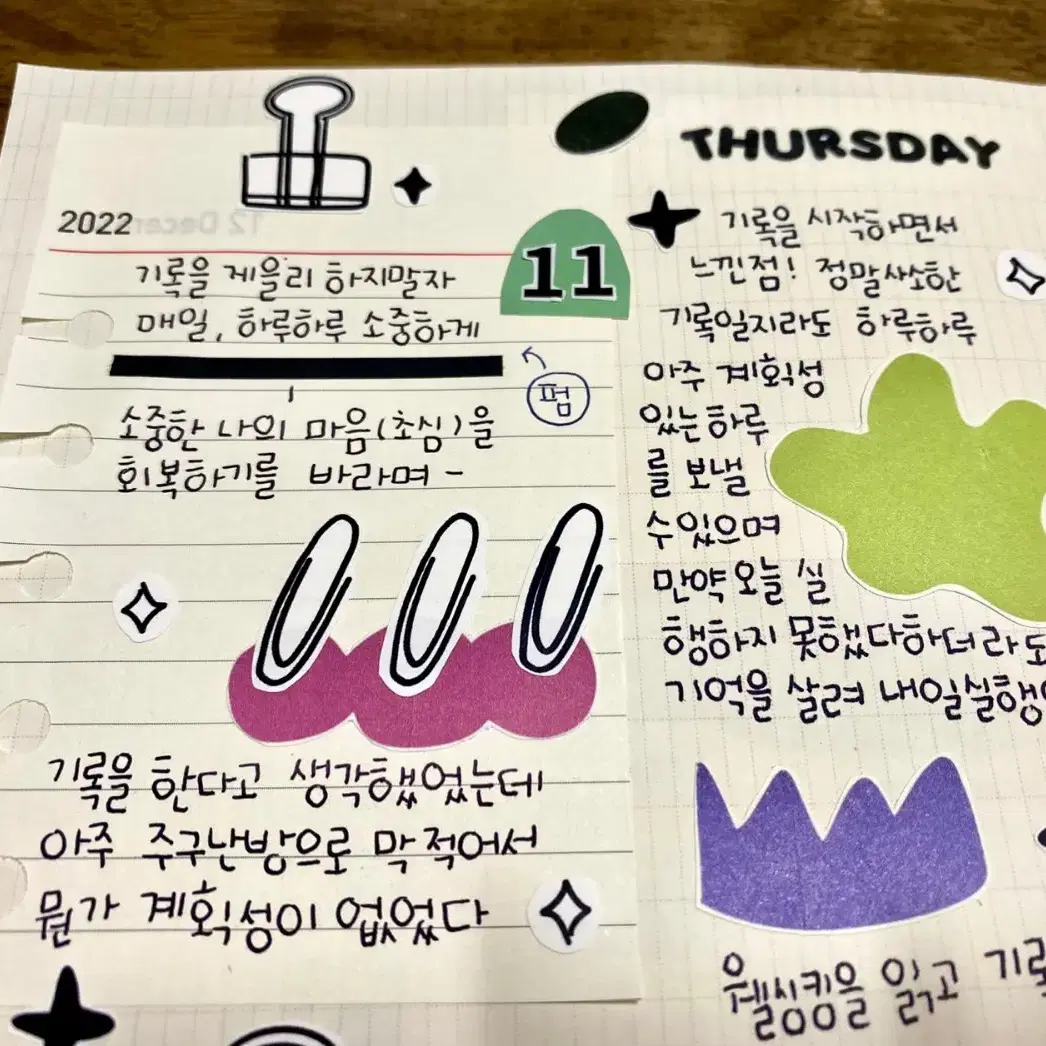 2022
11
기록을 게을리 하지말자
매일, 하루하루 소중하게
펌
소중한 나의 마음(초심)을
회복하기를 바라며 -
기록을 한다고 생각했었는데
아주 주구난방으로 막 적어서
뭔가 계획성이 없었다
THURSDAY
기록을 시작하면서
느낀점! 정말사소한
기록일지라도 하루하루
아주 계획성
있는 하루
를 보낼
수있으며
만약 오늘 실
행하지 못했다하더라도
기억을 살려 내일실행
웰씽킹을 읽고 기록